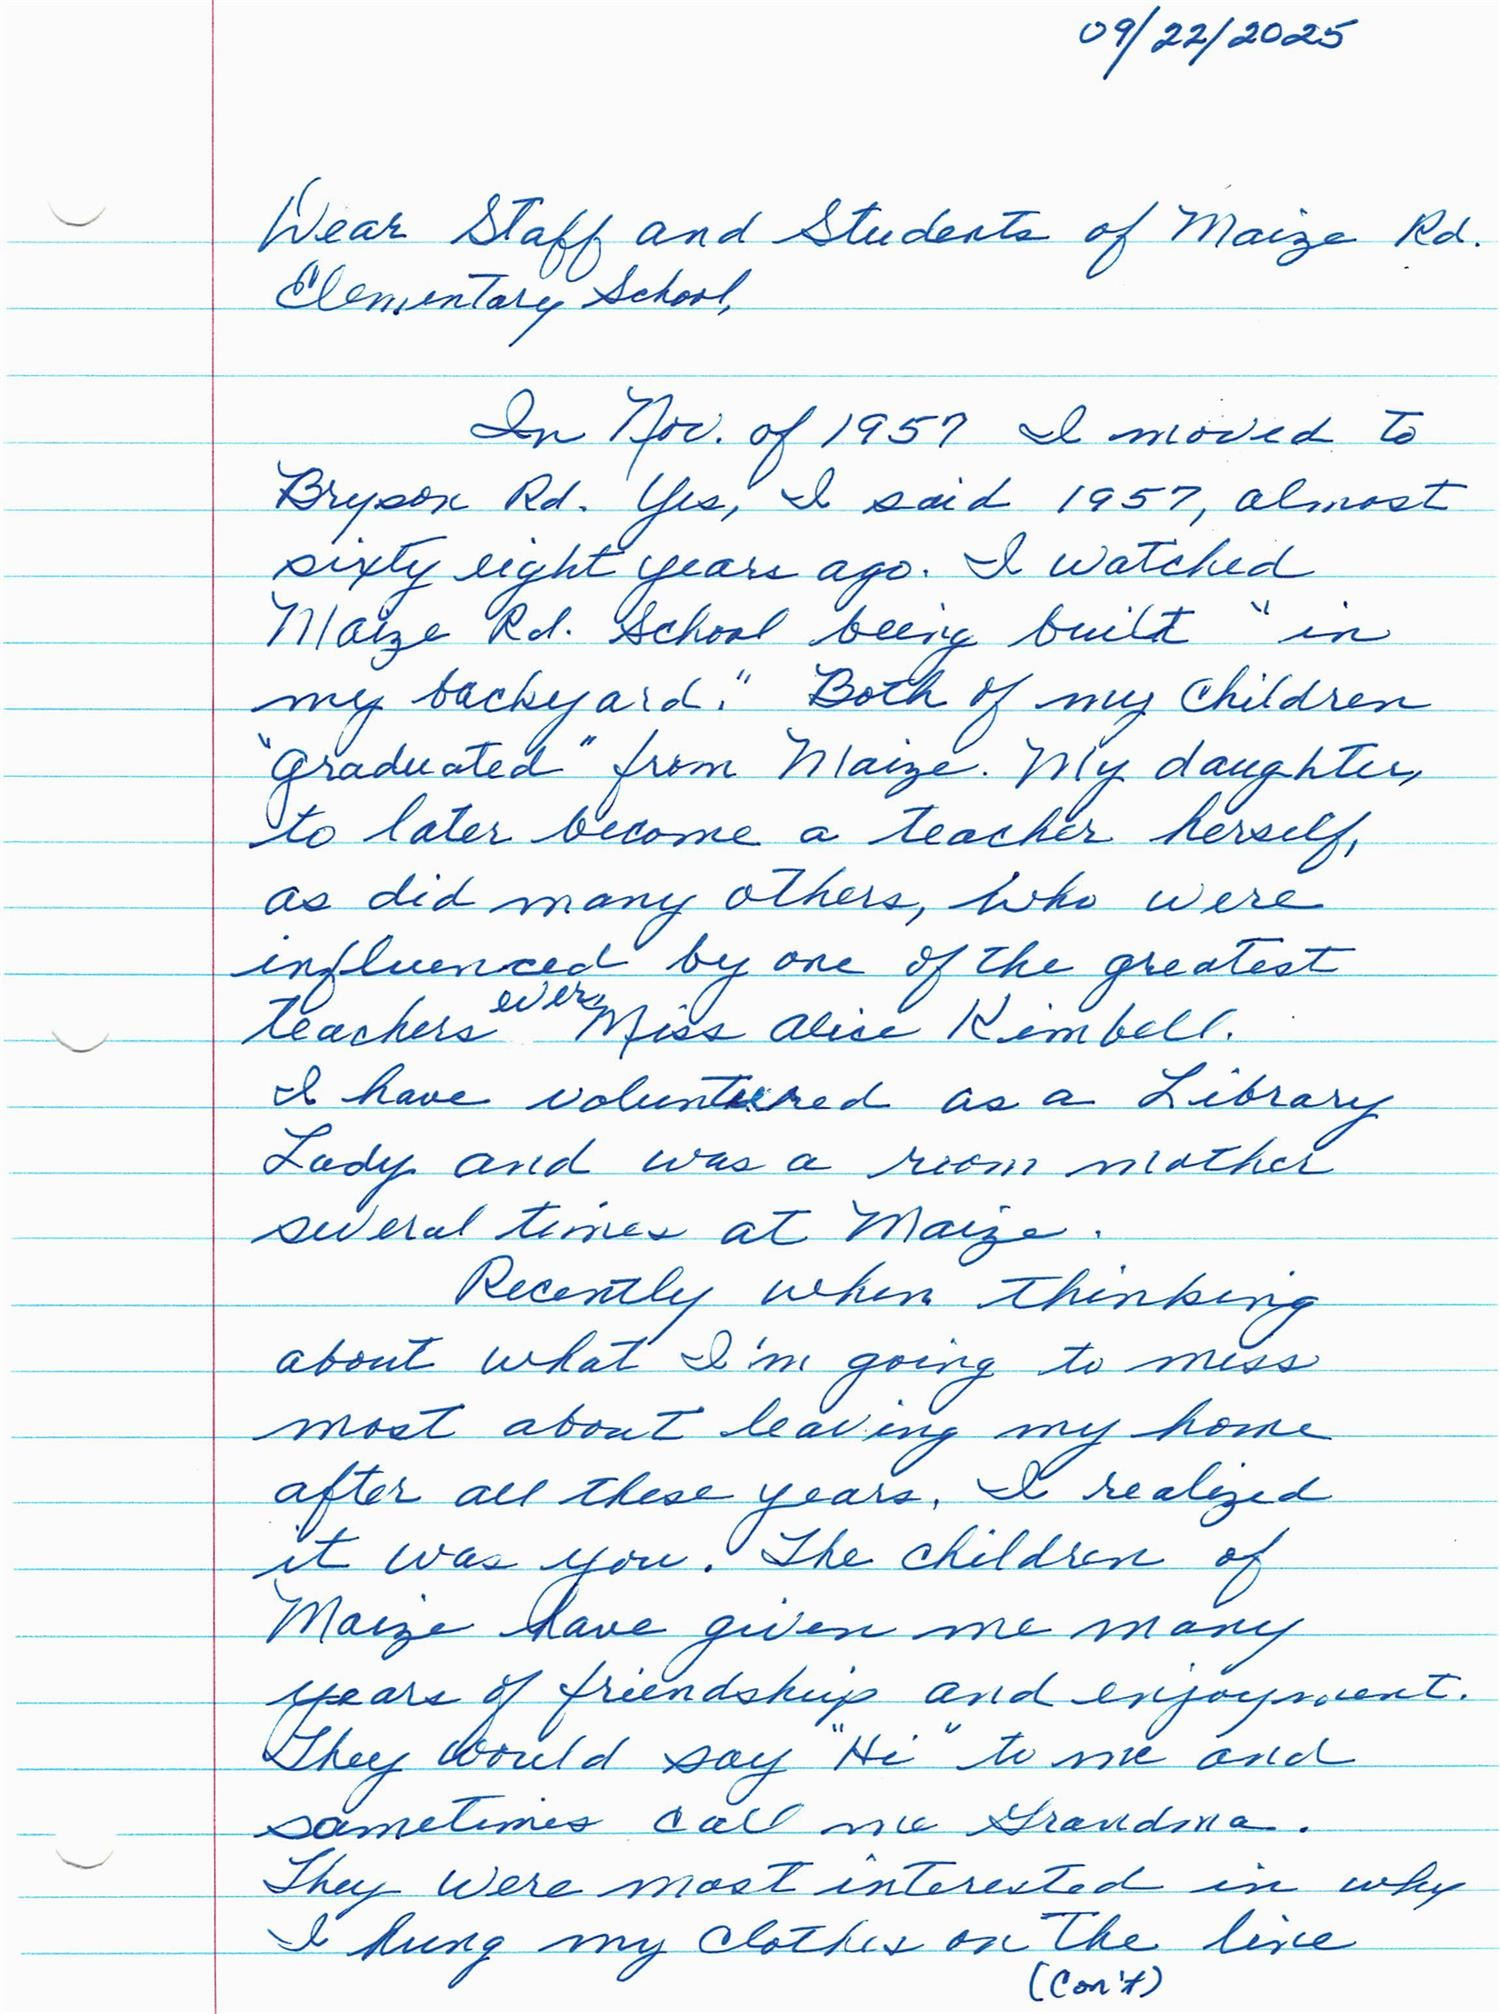 09/22/2025
Dear Staff and Students of Maize Rd.
Elementary School,
In Nov. of 1957 I moved to
Bryson Rd. Yes, I said 1957, almost
sixty eight years ago. I watched
Maize Rd. School being built "in
my backyard." Both of my children
"graduated" from Maize. My daughter,
to later become a teacher herself,
as did many others, who were
influenced by one of the greatest
teachers ever, Miss Alice Kimbell.
I have volunteered as a Library
Lady and was a room mother
several times at Maize.
Recently when thinking
about what I'm going to miss
most about leaving my home
after all these years, I realized
it was you. The children of
Maize have given me many
years of friendship and enjoyment.
They would say "Hi" to me and
sometimes call me Grandma.
They were most interested in why
I hung my clothes on the line
(Con't)